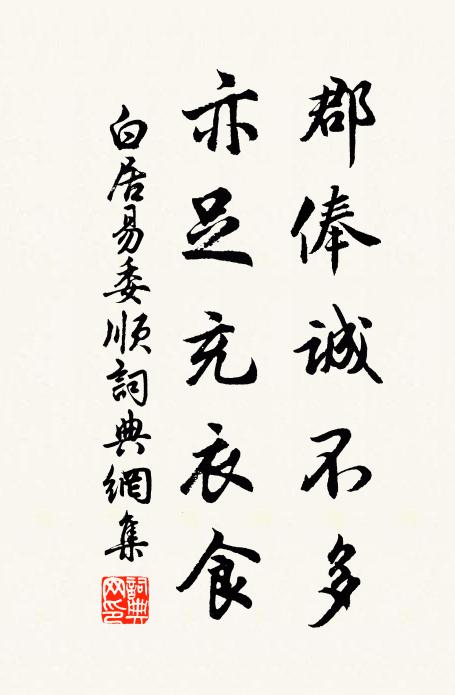 郡俸誠不多
亦足充衣食
白居易委順詞典網集
詞典網印